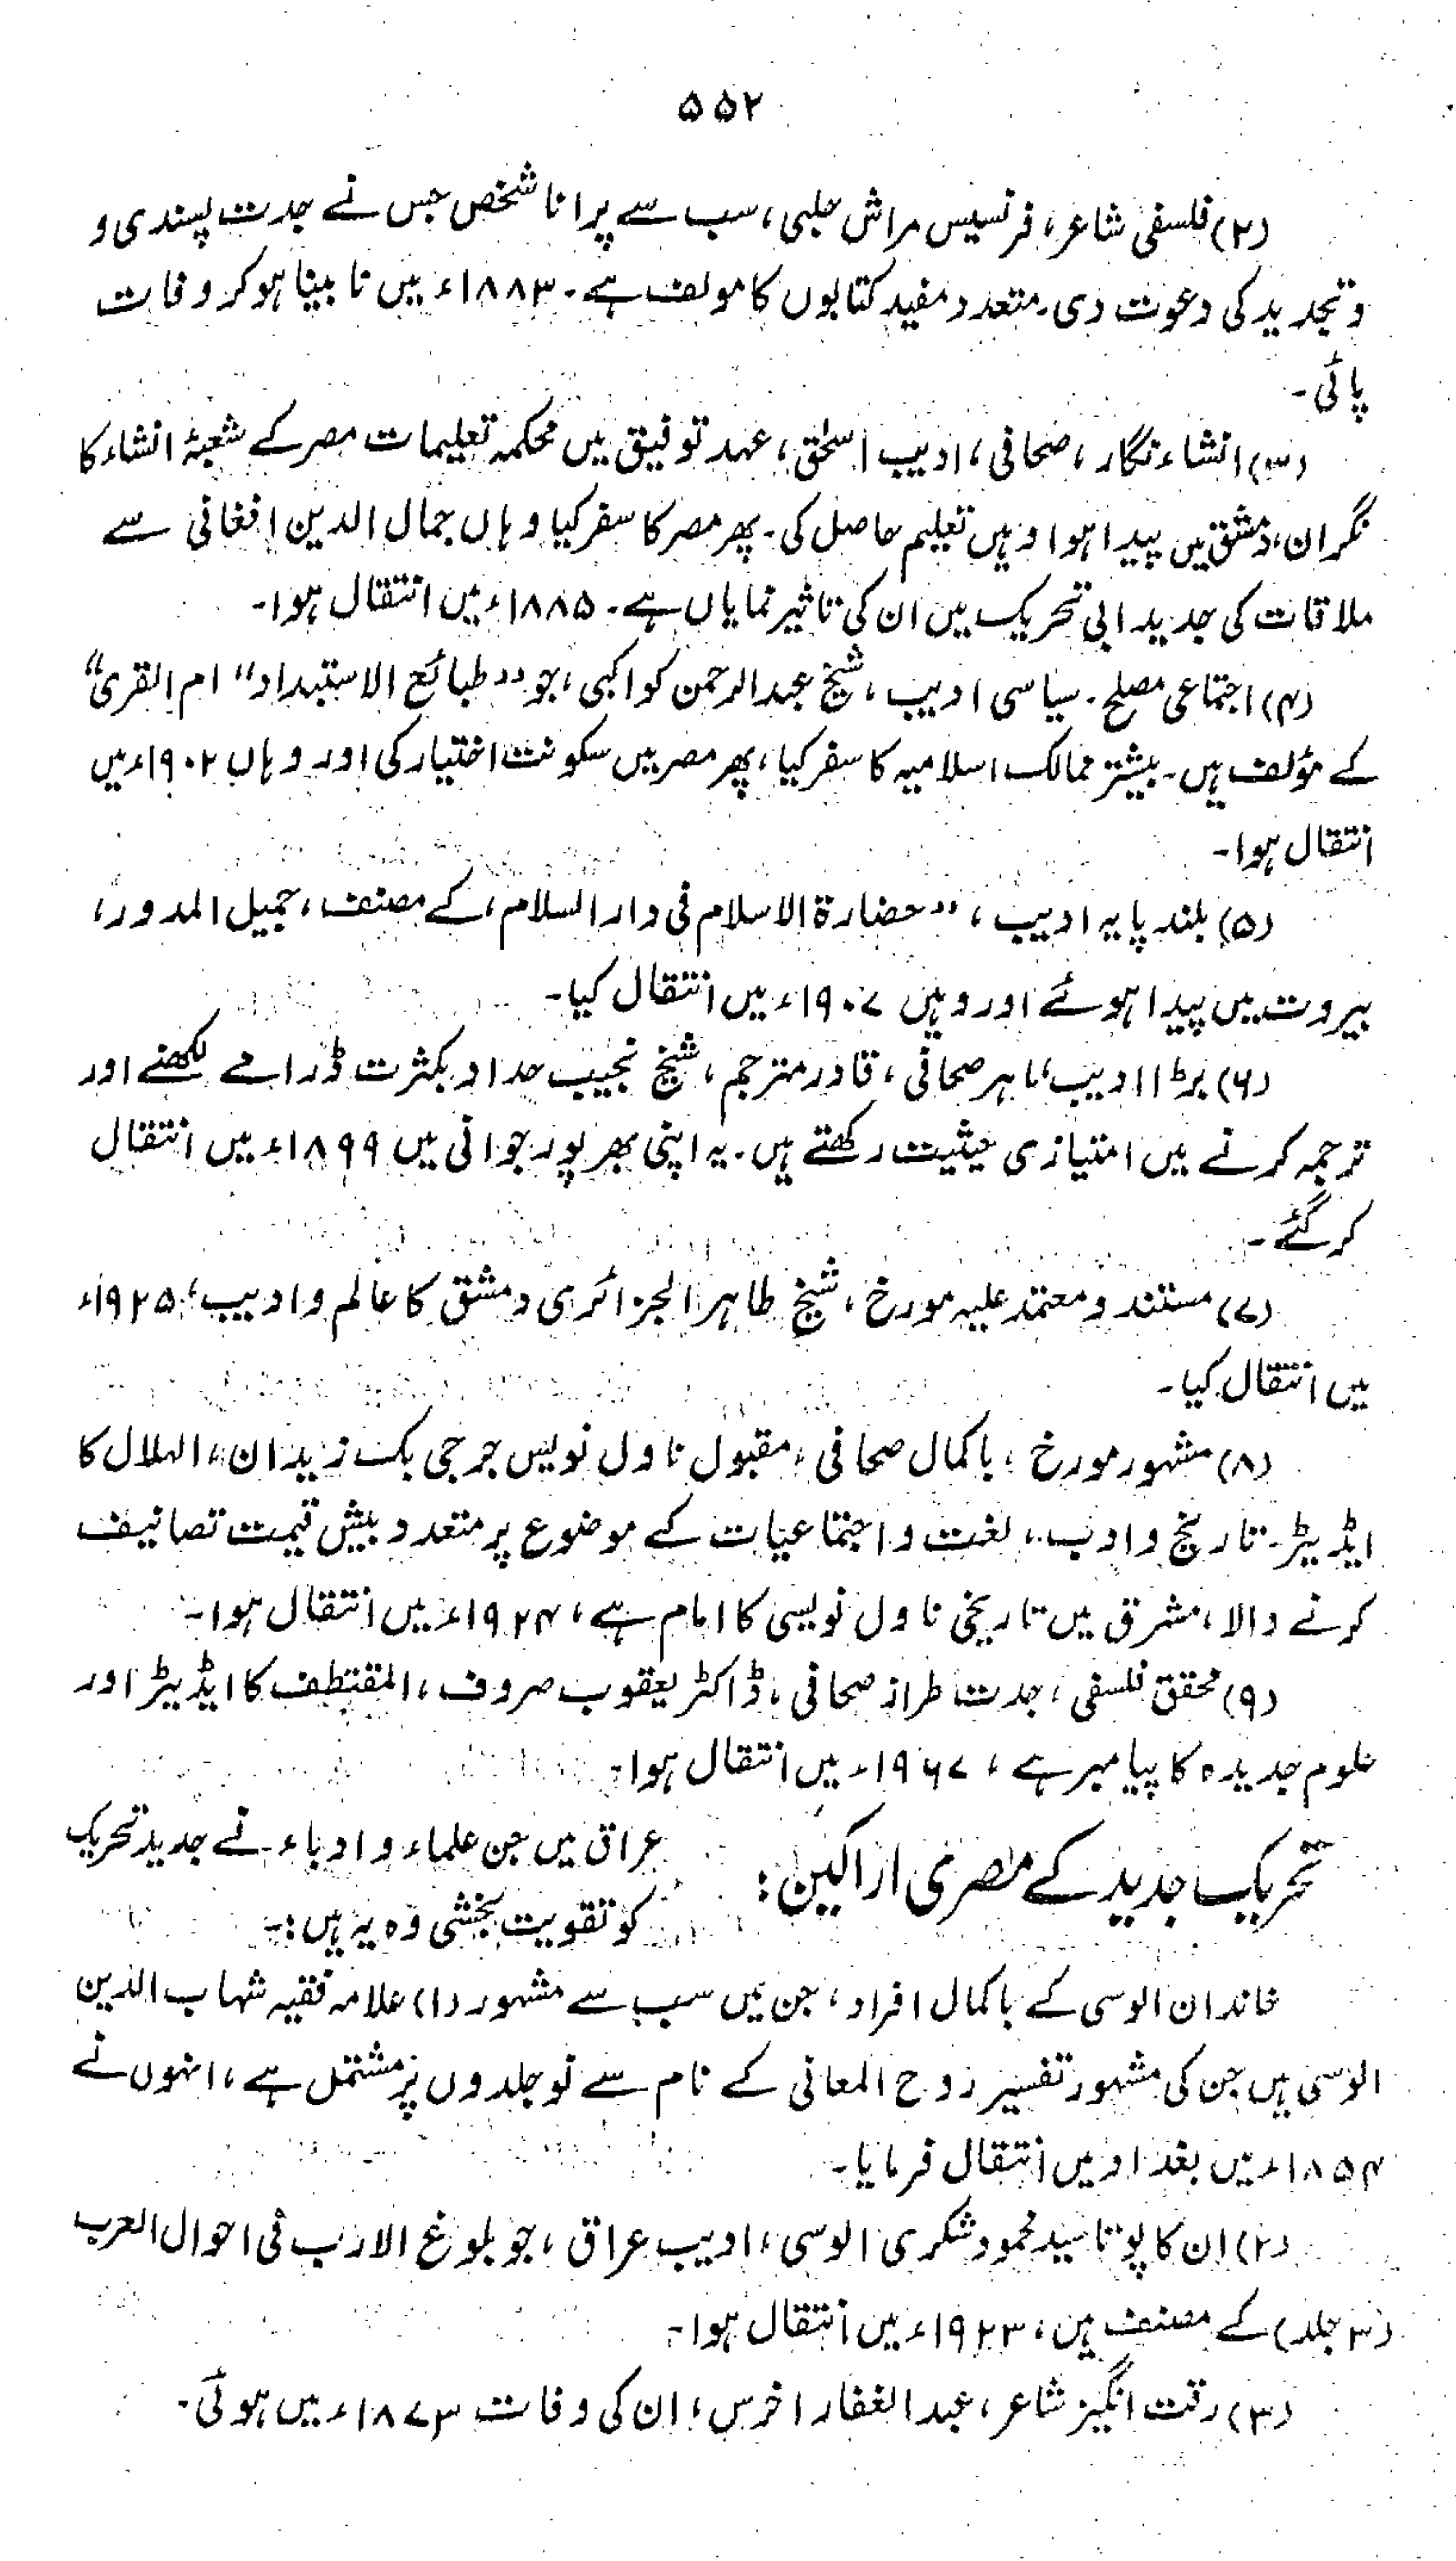 ۵۵۲
(۲) فلسفی شاعر، فرنسیس مراش حلبی، سب سے پرانا شخص جس نے جدت پسندی و
و تجدید کی دعوت دی۔ متعدد مفید کتابوں کا مولف ہے۔ ۱۸۸۳ء میں نابینا ہوکر وفات
پائی۔
(۳) انشاء نگار، صحافی، ادیب اسحٰق، عہد توفیق میں محکمہ تعلیمات مصر کے شعبۂ انشاء کا
نگران، دمشق میں پیدا ہوا وہیں تعلیم حاصل کی۔ پھر مصر کا سفر کیا وہاں جمال الدین افغانی سے
ملاقات کی جدید ابی تحریک میں ان کی تاثیر نمایاں ہے۔ ۱۸۸۵ء میں انتقال ہوا۔
(۴) اجتماعی مصلح۔ سیاسی ادیب، شیخ عبدالرحمن کواکبی، جو ”طبائع الاستبداد“ ام القریٰ“
کے مؤلف ہیں۔ بیشتر ممالک اسلامیہ کا سفر کیا، پھر مصر میں سکونت اختیار کی اور وہاں ۱۹۰۲ء میں
انتقال ہوا۔
(۵) بلند پایہ ادیب، ”حضارۃ الاسلام فی دارالسلام، کے مصنف، جمیل المدور،
بیروت میں پیدا ہوئے اور وہیں ۱۹۰۷ء میں انتقال کیا۔
(۶) بڑا ادیب، ماہر صحافی، قادر مترجم، شیخ نجیب حداد بکثرت ڈرامے لکھنے اور
ترجمہ کرنے میں امتیازی حیثیت رکھتے ہیں۔ یہ اپنی بھرپور جوانی میں ۱۸۹۹ء میں انتقال
کرگئے۔
(۷) مستند و معتمد علیہ مورخ، شیخ طاہر الجزائری دمشق کا عالم و ادیب، ۱۹۲۵ء
میں انتقال کیا۔
(۸) مشہور مورخ، باکمال صحافی، مقبول ناول نویس جرجی بک زیدان، الہلال کا
ایڈیٹر۔ تاریخ و ادب، لغت و اجتماعیات کے موضوع پر متعدد بیش قیمت تصانیف
کرنے والا، مشرق میں تاریخی ناول نویسی کا امام ہے، ۱۹۲۴ء میں انتقال ہوا۔
(۹) محقق فلسفی، جدت طراز صحافی، ڈاکٹر یعقوب صروف، المقتطف کا ایڈیٹر اور
علوم جدیدہ کا پیامبر ہے، ۱۹۶۷ء میں انتقال ہوا۔
تحریک جدید کے مصری اراکین:
عراق میں جن علماء و ادباء نے جدید تحریک
کو تقویت بخشی وہ یہ ہیں:۔
خاندان الوسی کے باکمال افراد، جن میں سب سے مشہور (۱) علامہ فقیہ شہاب الدین
الوسی ہیں جن کی مشہور تفسیر روح المعانی کے نام سے نو جلدوں پر مشتمل ہے، انہوں نے
۱۸۵۴ء میں بغداد میں انتقال فرمایا۔
(۲) ان کا پوتا سید محمود شکری الوسی، ادیب عراق، جو بلوغ الارب فی احوال العرب
(۳ جلد) کے مصنف ہیں، ۱۹۲۳ء میں انتقال ہوا۔
(۳) رقت انگیز شاعر، عبدالغفار اخرس، ان کی وفات ۱۸۷۳ء میں ہوئی۔